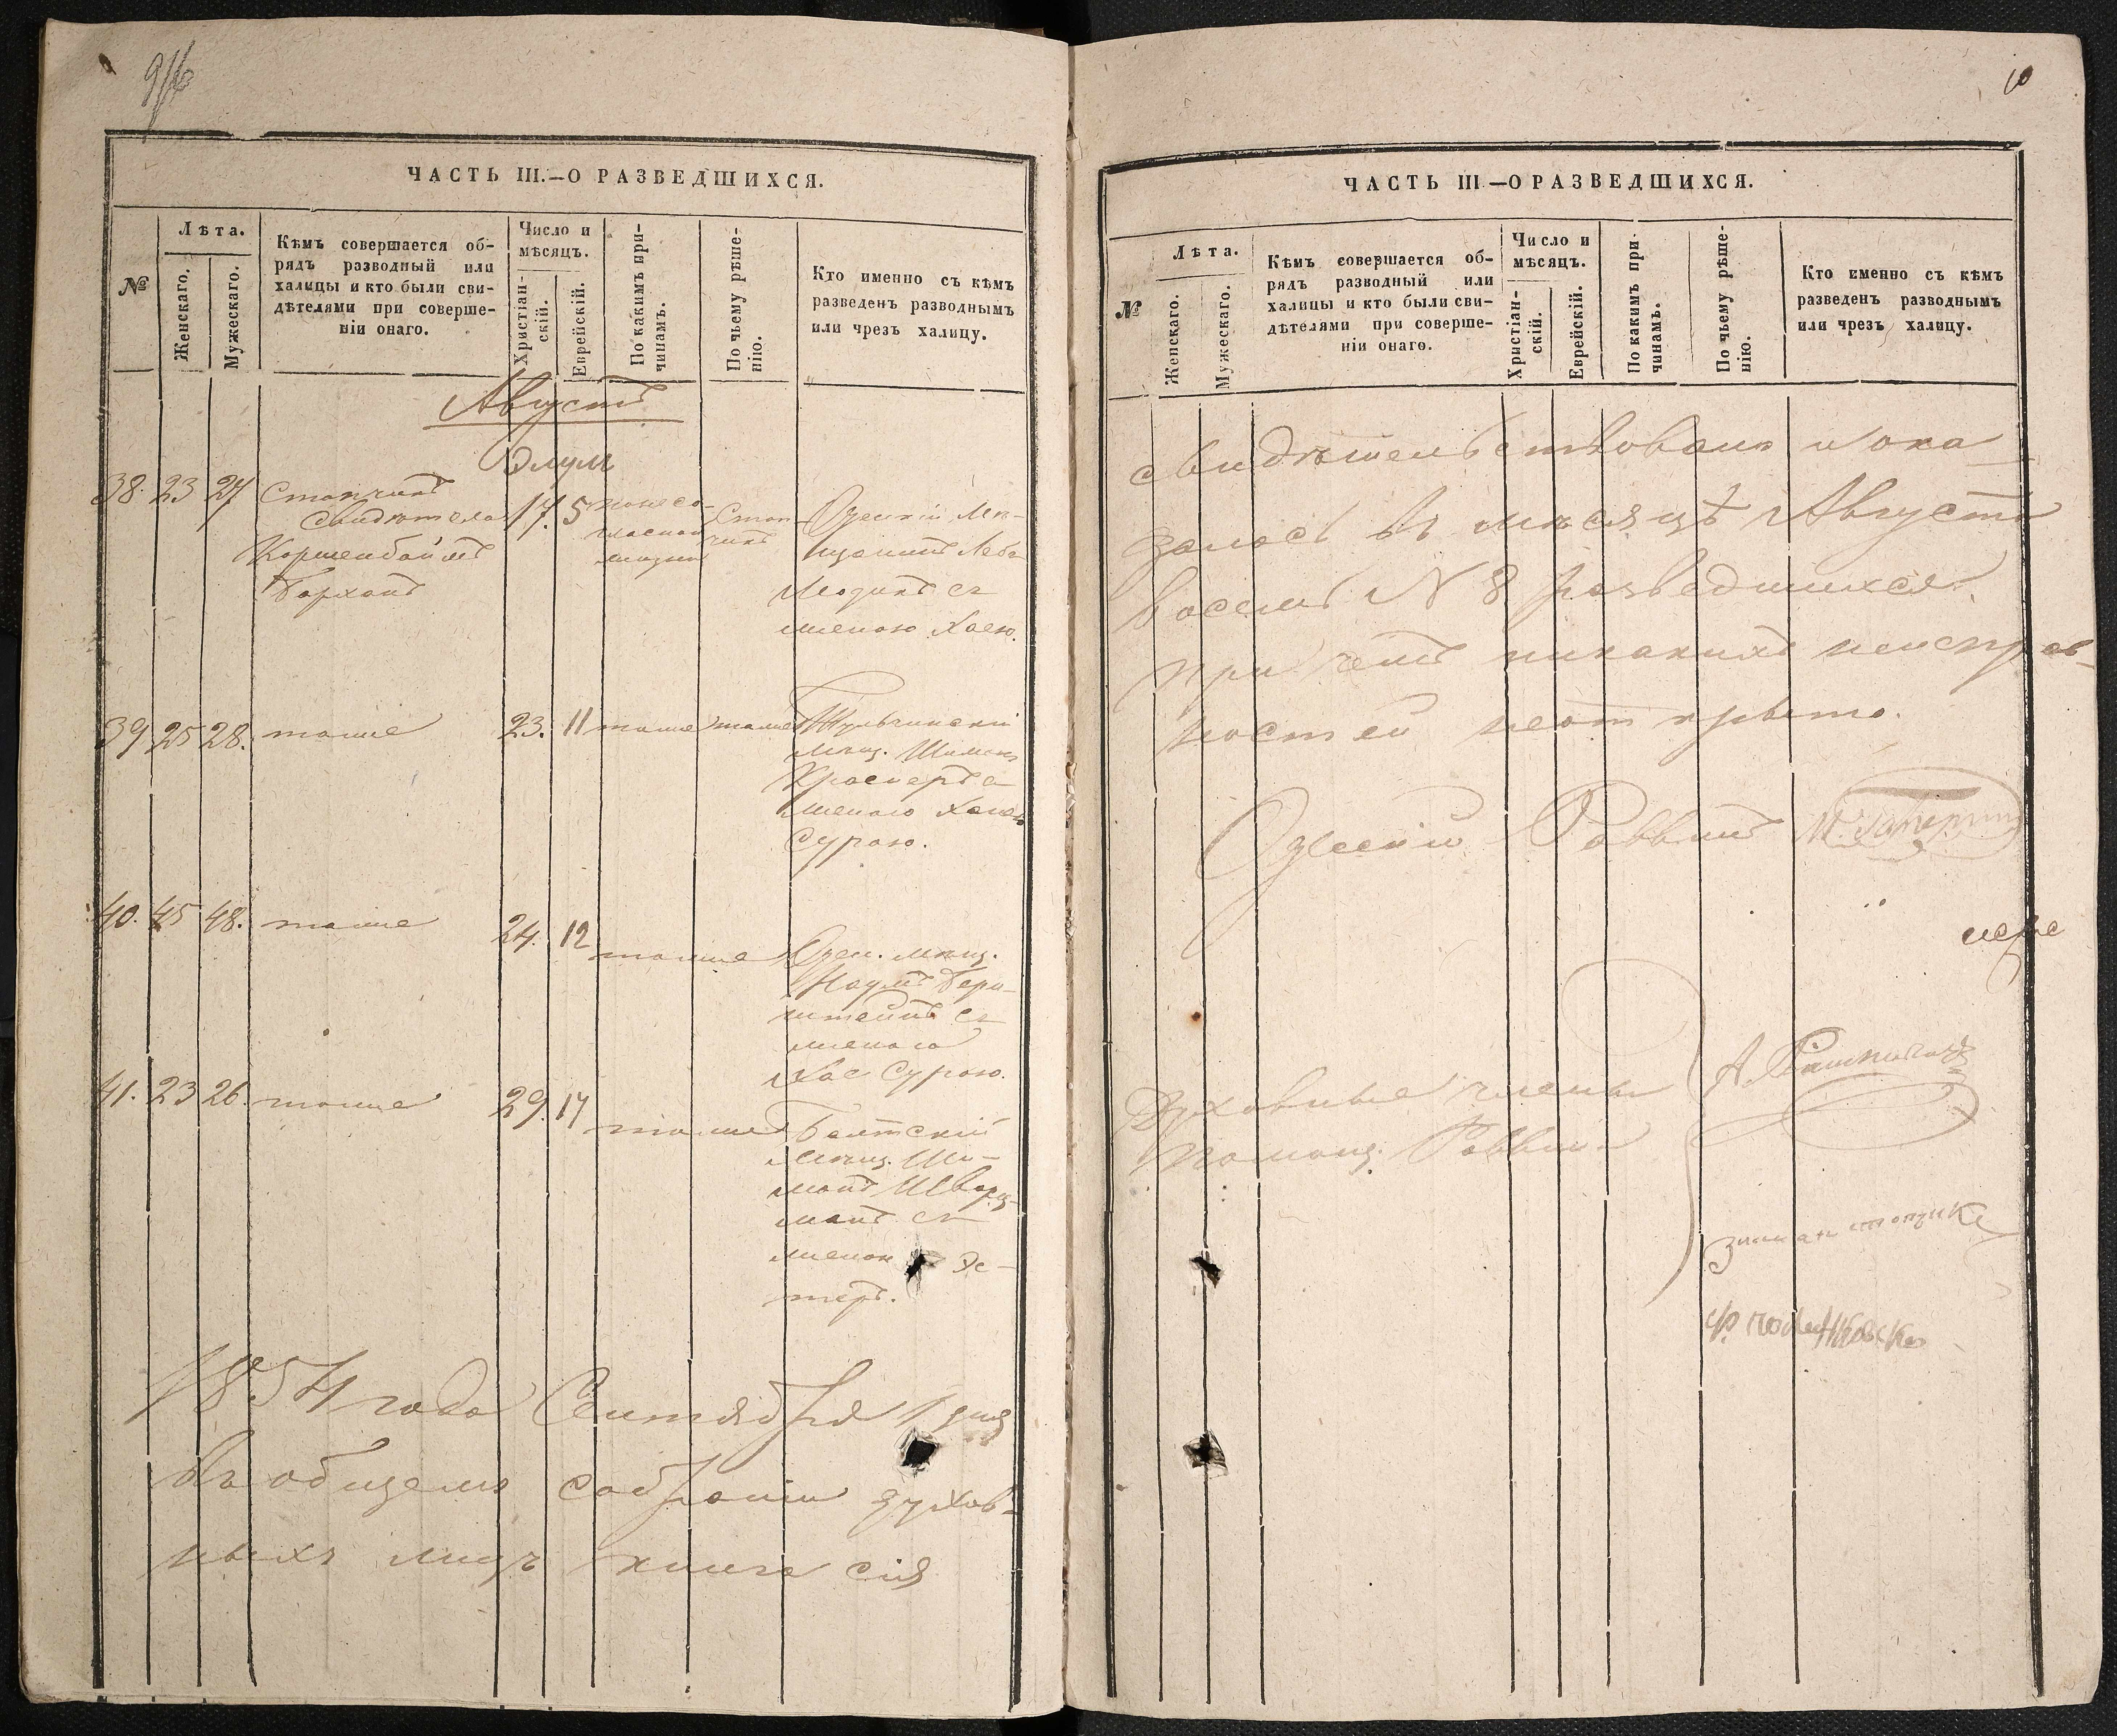 9/6
ЧАСТЬ III.—О РАЗВЕДШИХСЯ.
№
Лѣта.
Женскаго.
Мужескаго.
Кѣмъ совершается об-
рядъ разводный или
халицы и кто были сви-
дѣтелями при соверше-
ніи онаго.
Число и
мѣсяцъ.
Христіан-
скій.
Еврейскій.
По какимъ при-
чинамъ.
По чьему рѣше-
нію.
Кто именно съ кѣмъ
разведенъ разводнымъ
или чрезъ халицу.
Августъ
Элулъ
38. 23 27 17. 5
свидѣтели
Барханъ
Одескій Мѣ-
щанинъ Лейба
съ
женою Хаею.
39 25 28. тоже 23. 11 тоже тоже Тульчинскій
Мѣщ.
женою
Сурою.
40. 45 48. тоже 24. 12 тоже Одес. мѣщ.
Наумъ Берн-
штейнъ съ
женою
Хае Сурою.
41. 23 26. тоже 29. 17 тоже Балтскій
Мѣщ. Ши-
монъ Шварц-
манъ съ
женою Эс-
теръ.
1854 года Сентября 1 дня
въ общемъ собраніи духов-
ныхъ лицъ книга сія
10
ЧАСТЬ III—О РАЗВЕДШИХСЯ.
№
Лѣта.
Женскаго.
Мужескаго.
Кѣмъ совершается об-
рядъ разводный или
халицы и кто были сви-
дѣтелями при соверше-
ніи онаго.
Число и
мѣсяцъ.
Христіан-
скій.
Еврейскій.
По какимъ при-
чинамъ.
По чьему рѣше-
нію.
Кто именно съ кѣмъ
разведенъ разводнымъ
или чрезъ халицу.
свидѣтельствована и ока
залось въ мѣсяцѣ Августѣ
восемь N 8 разведшихся
при чемъ никакихъ неисправ-
ностей неоткрыто.
Одескій Раввинъ
Духовные члены
Помощ. Раввина